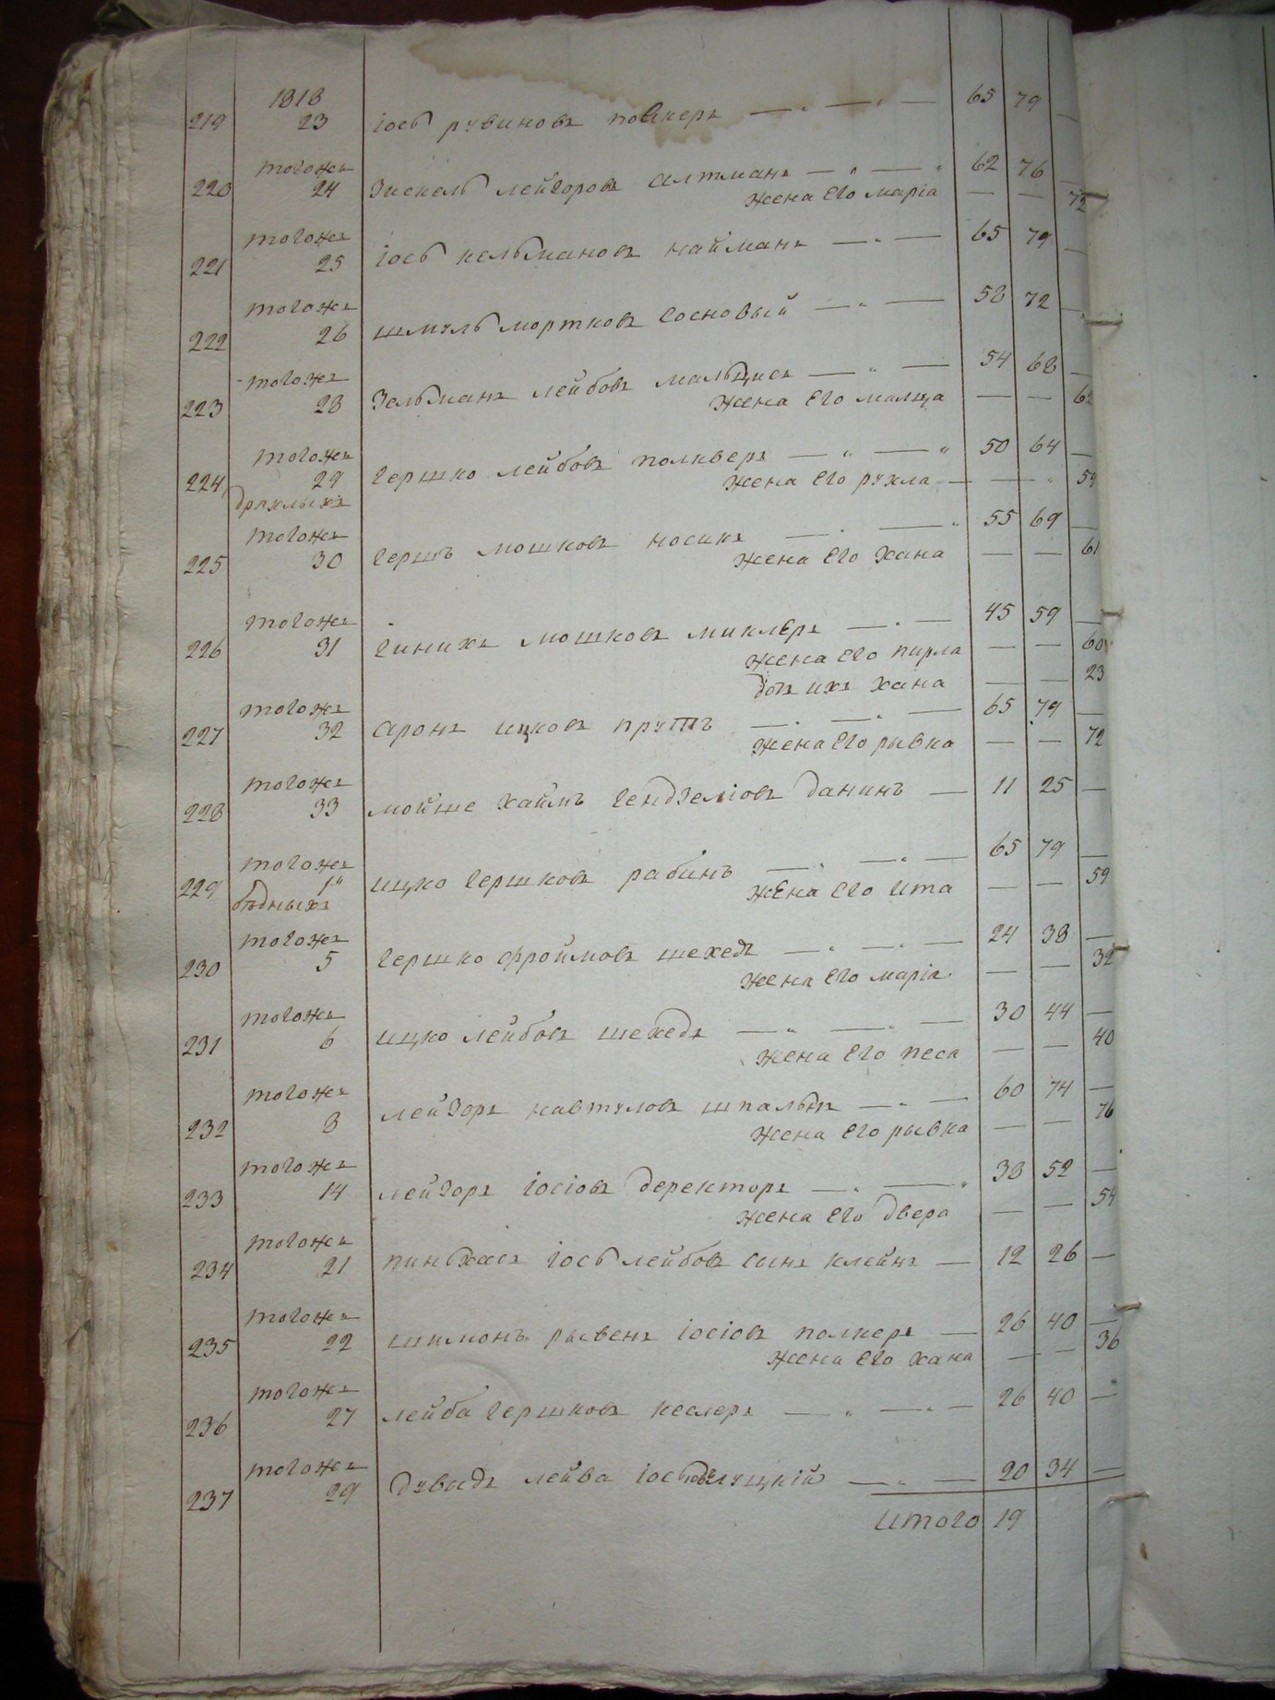 1818 65 79
219 23 іось рувиновъ —
тогожъ 62 76
220 24 лейзоровъ алтманъ —
жена его маріа — — 72
тогожъ 65 79
221 25 іось кельмановъ найманъ —
тогожъ 58 72
222 26 шмуль мортковъ сосновый —
тогожъ 54 68 —
223 28 Зельманъ лейбовъ —
жена его малца — —
тогожъ 50 64 —
224 29 гершко лейбовъ поликверъ —
дряхлыхъ жена его рухла — — 59
тогожъ 55 69 —
225 30 гершъ мошковъ носикъ —
жена его хана — — 61
тогожъ 45 59 —
226 31 мошковъ миклеръ —
жена его пирла — — 60
дочь ихъ хана — — 23
тогожъ 65 79 —
227 32 аронъ ицковъ прутъ —
жена его рывка — — 72
тогожъ 11 25 —
228 33 мойше хаймъ гендзеліовъ данинъ —
тогожъ 65 79 —
229 1 ицко гершковъ рабинъ —
бѣдныхъ жена его ита — — 59
тогожъ 24 38 —
230 5 гершко фроймовъ шехедъ —
жена его маріа — — 32
тогожъ 30 44 —
231 6 ицко лейбовъ шехедъ —
жена его песа — — 40
тогожъ 60 74 —
232 8 лейзоръ навтуловъ —
жена его рывка — — 76
тогожъ 38 52 —
233 14 лейзоръ іосіовъ деректоръ —
жена его двера — — 54
тогожъ 12 26 —
234 21 пинькасъ іось лейбовъ сынъ клейнъ —
тогожъ 26 40 —
235 22 шимонъ рывенъ іосіовъ полкеръ —
жена его хана — — 36
тогожъ 26 40 —
236 27 лейба гершковъ кеслеръ —
тогожъ 20 34 —
237 29 дувидъ лейба —
итого 19